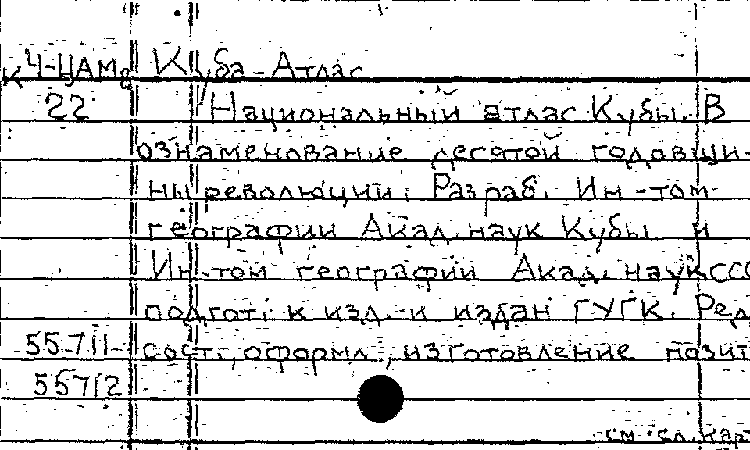 К Ч-ЦАМв Куба - Атлас
22 Национальный атлас Кубы. В
ознаменование десятой годовщи-
ны революции. Разраб. Ин-том
географии Акад. наук Кубы и
Ин-том географии Акад. наук ССС
подгот. к изд. и издан ГУГК. Ред
55711 сост., оформл., изготовление позит
55712
см. сл. карт